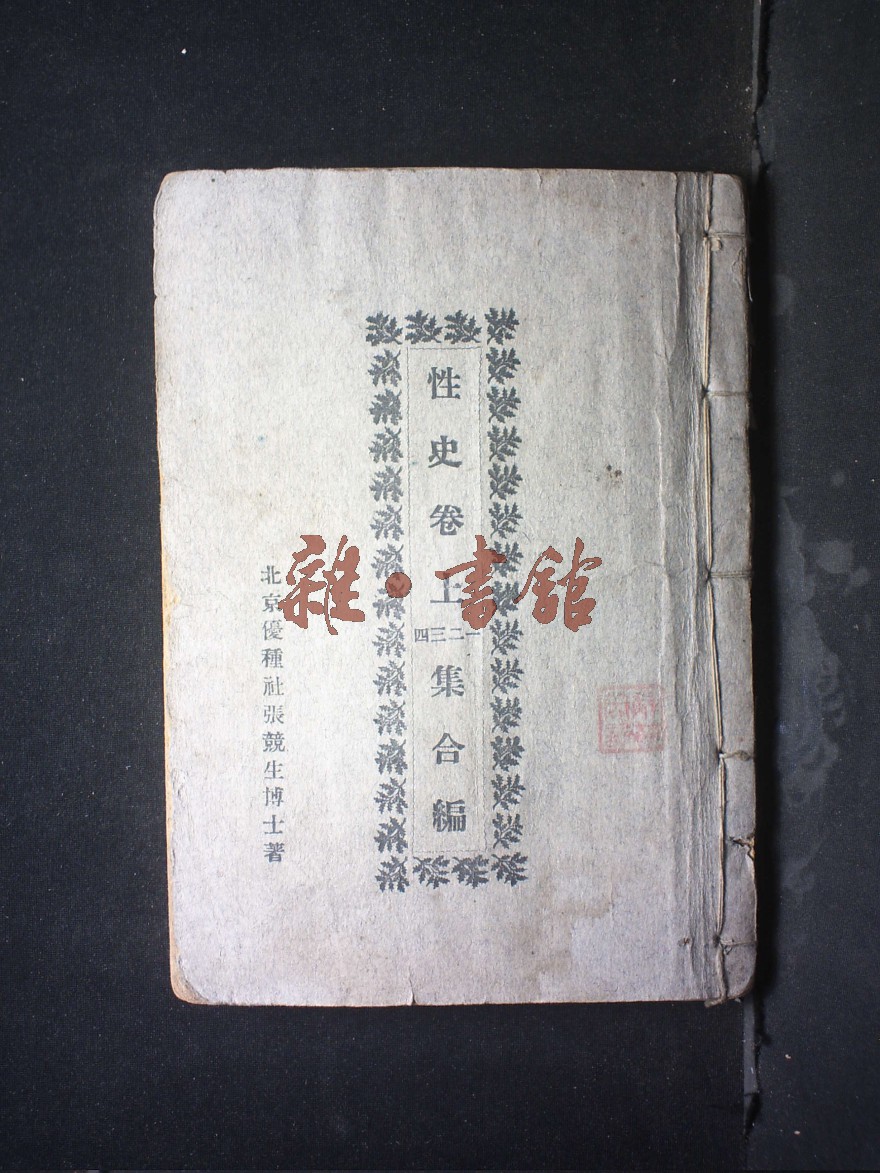 性史卷上一二三四集合編
北京優種社張競生博士著
雜·書館